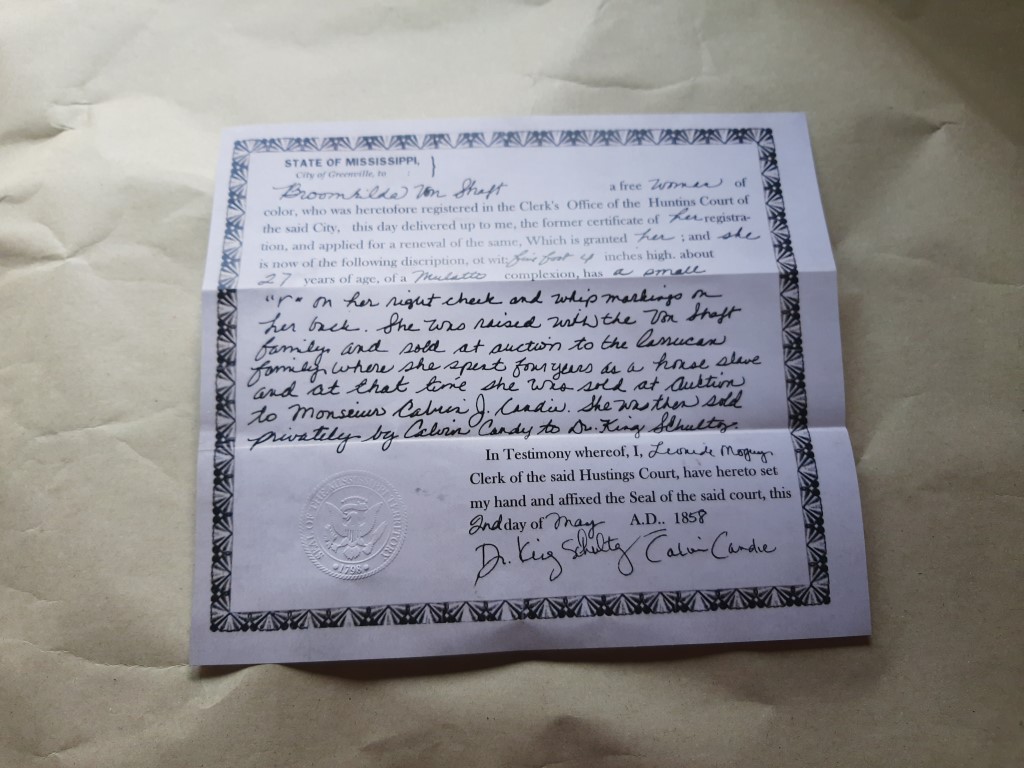 STATE OF MISSISSIPPI, }
City of Greenville, to :
Broomhilda Von Shaft a free woman of
color, who was heretofore registered in the Clerk's Office of the Huntins Court of
the said City, this day delivered up to me, the former certificate of her registra-
tion, and applied for a renewal of the same, Which is granted her ; and she
is now of the following discription, ot wit: five foot 4 inches high. about
27 years of age, of a Mulatto complexion, has a small
"r" on her right cheek and whip markings on
her back. She was raised with the Von Shaft
family and sold at auction to the Carrucan
family where she spent four years as a house slave
and at that time she was sold at Auction
to Monseiur Calvin J. Candie. She was then sold
privately by Calvin Candy to Dr. King Schultz.
In Testimony whereof, I, Leonide Moguy
Clerk of the said Hustings Court, have hereto set
my hand and affixed the Seal of the said court, this
2nd day of May A.D.. 1858
Dr. King Schultz Calvin Candie
SEAL OF THE MISSISSIPPI TERRITORY
1798